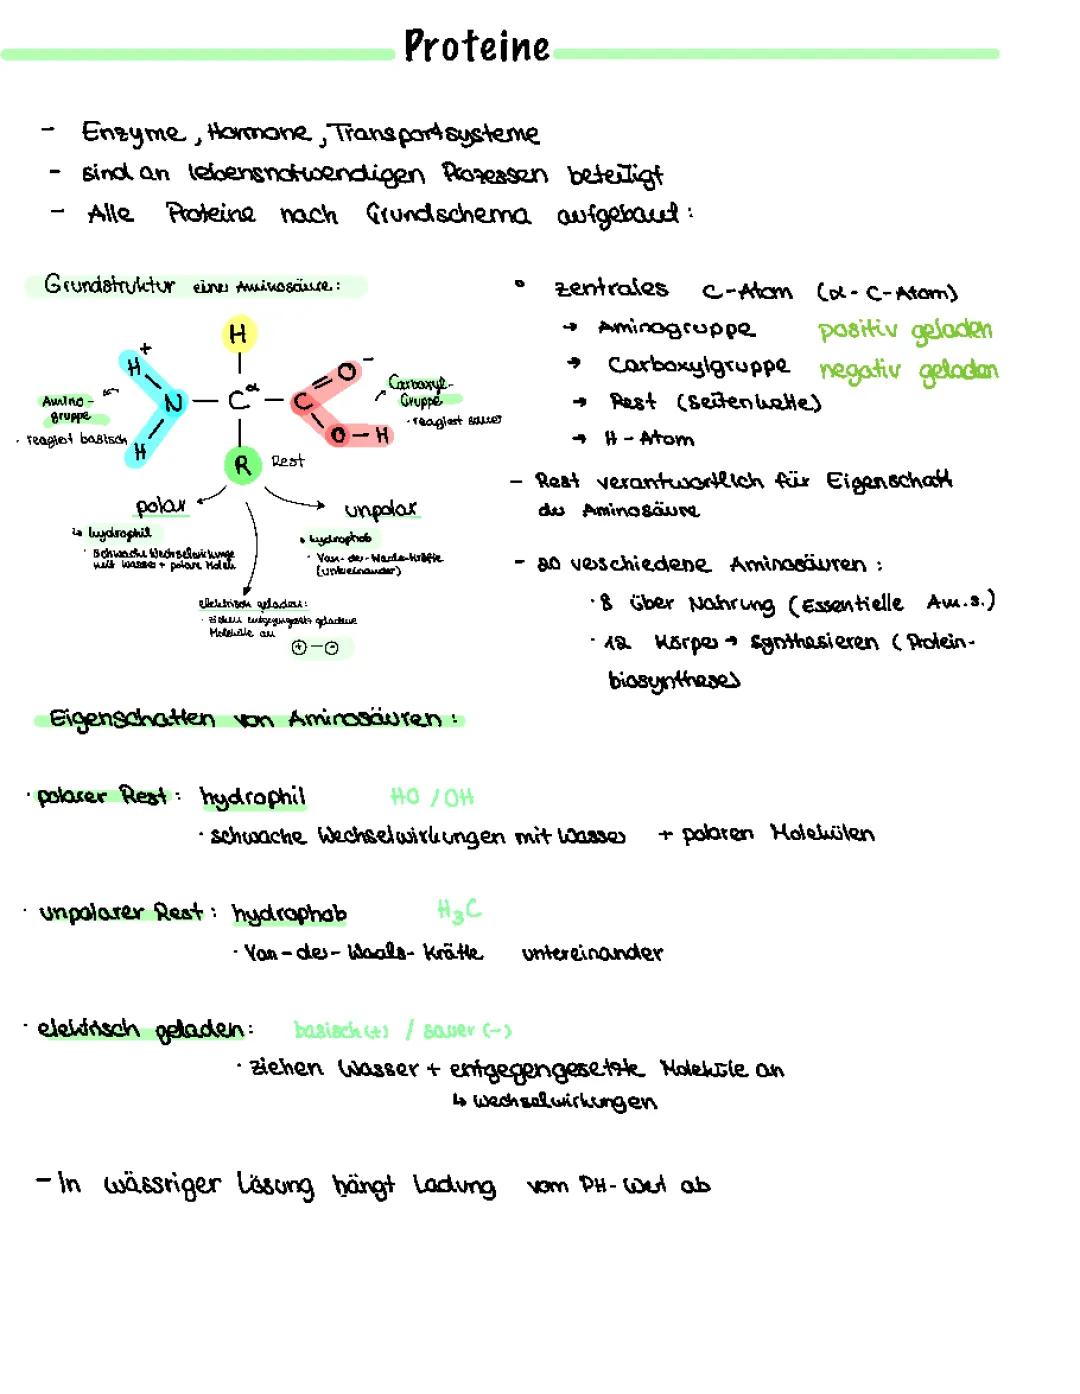 Proteine
- Enzyme, Hormone, Transportsysteme
- sind an lebensnotwendigen Prozessen beteiligt
- Alle Proteine nach Grundschema aufgebaut:
Grundstruktur einer Aminosäure:
H
+
H
N
H
Amino-
gruppe
· reagiert basisch
C α
C
O -
O - H
Carboxyl-
Gruppe
· reagiert sauer
R Rest
polar
↳ hydrophil
· Schwache Wechselwirkunge
mit Wasser + polare Molek.
unpolar
hydrophob
· Van-der-Waals-Kräfte
(untereinander)
elektrisch geladen:
· ziehen entgegengesetzt geladene
Moleküle an
⊕-⊖
• zentrales C-Atom (α-C-Atom)
→ Aminogruppe positiv geladen
→ Carboxylgruppe negativ geladen
→ Rest (Seitenkette)
→ H-Atom
- Rest verantwortlich für Eigenschaft
der Aminosäure
- 20 verschiedene Aminosäuren:
· 8 über Nahrung (Essentielle Am.s.)
· 12 Körper → Synthesieren (Protein-
biosynthese)
Eigenschaften von Aminosäuren:
· polarer Rest: hydrophil HO / OH
· schwache Wechselwirkungen mit Wasser + polaren Molekülen
· unpolarer Rest: hydrophob H₃C
· Van-der-Waals-Kräfte untereinander
· elektrisch geladen: basisch (+) / sauer (-)
· ziehen Wasser + entgegengesetzte Moleküle an
↳ Wechselwirkungen
- In wässriger Lösung hängt Ladung vom PH-Wert ab